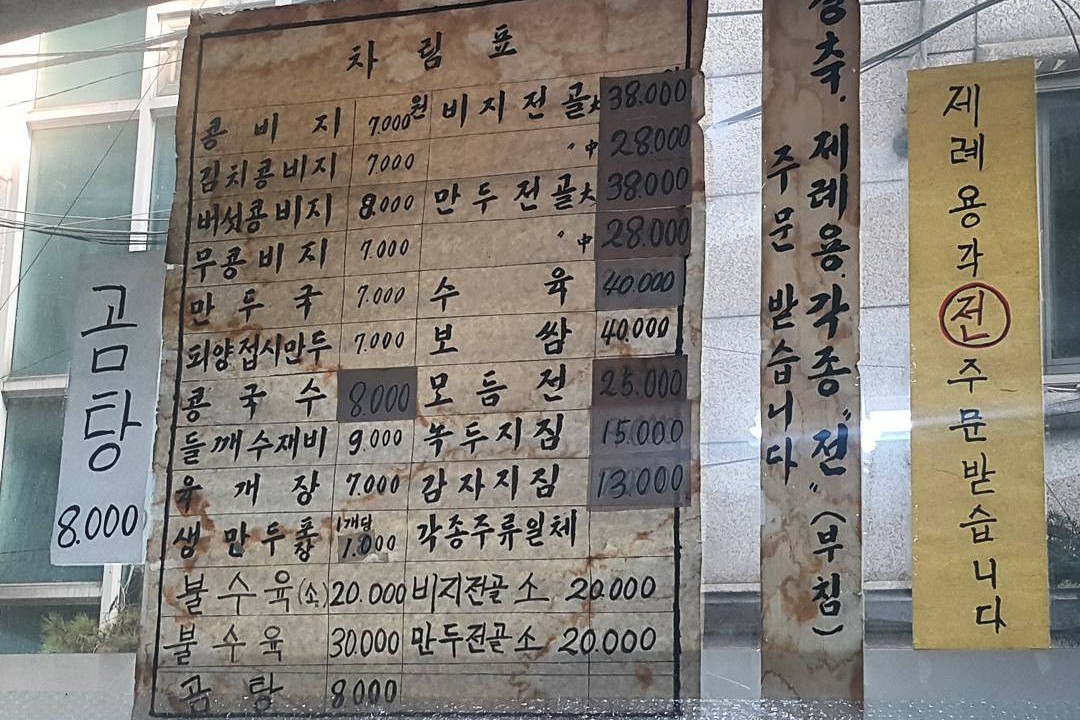 곰탕
8.000
차림표
콩비지 7.000원 비지전골大 38.000
김치콩비지 7.000 〃中 28.000
버섯콩비지 8.000 만두전골大 38.000
무콩비지 7.000 〃中 28.000
만두국 7.000 수육 40.000
피양접시만두 7.000 보쌈 40.000
콩국수 8.000 모듬전 25.000
들깨수재비 9.000 녹두지짐 15.000
육개장 7.000 감자지짐 13.000
생만두포장 1개당 1.000 각종주류일체
불수육(소) 20.000 비지전골소 20.000
불수육 30.000 만두전골소 20.000
곰탕 8000
축. 제례용.각종"전"(부침)
주문 받습니다
제례용각전주문받습니다